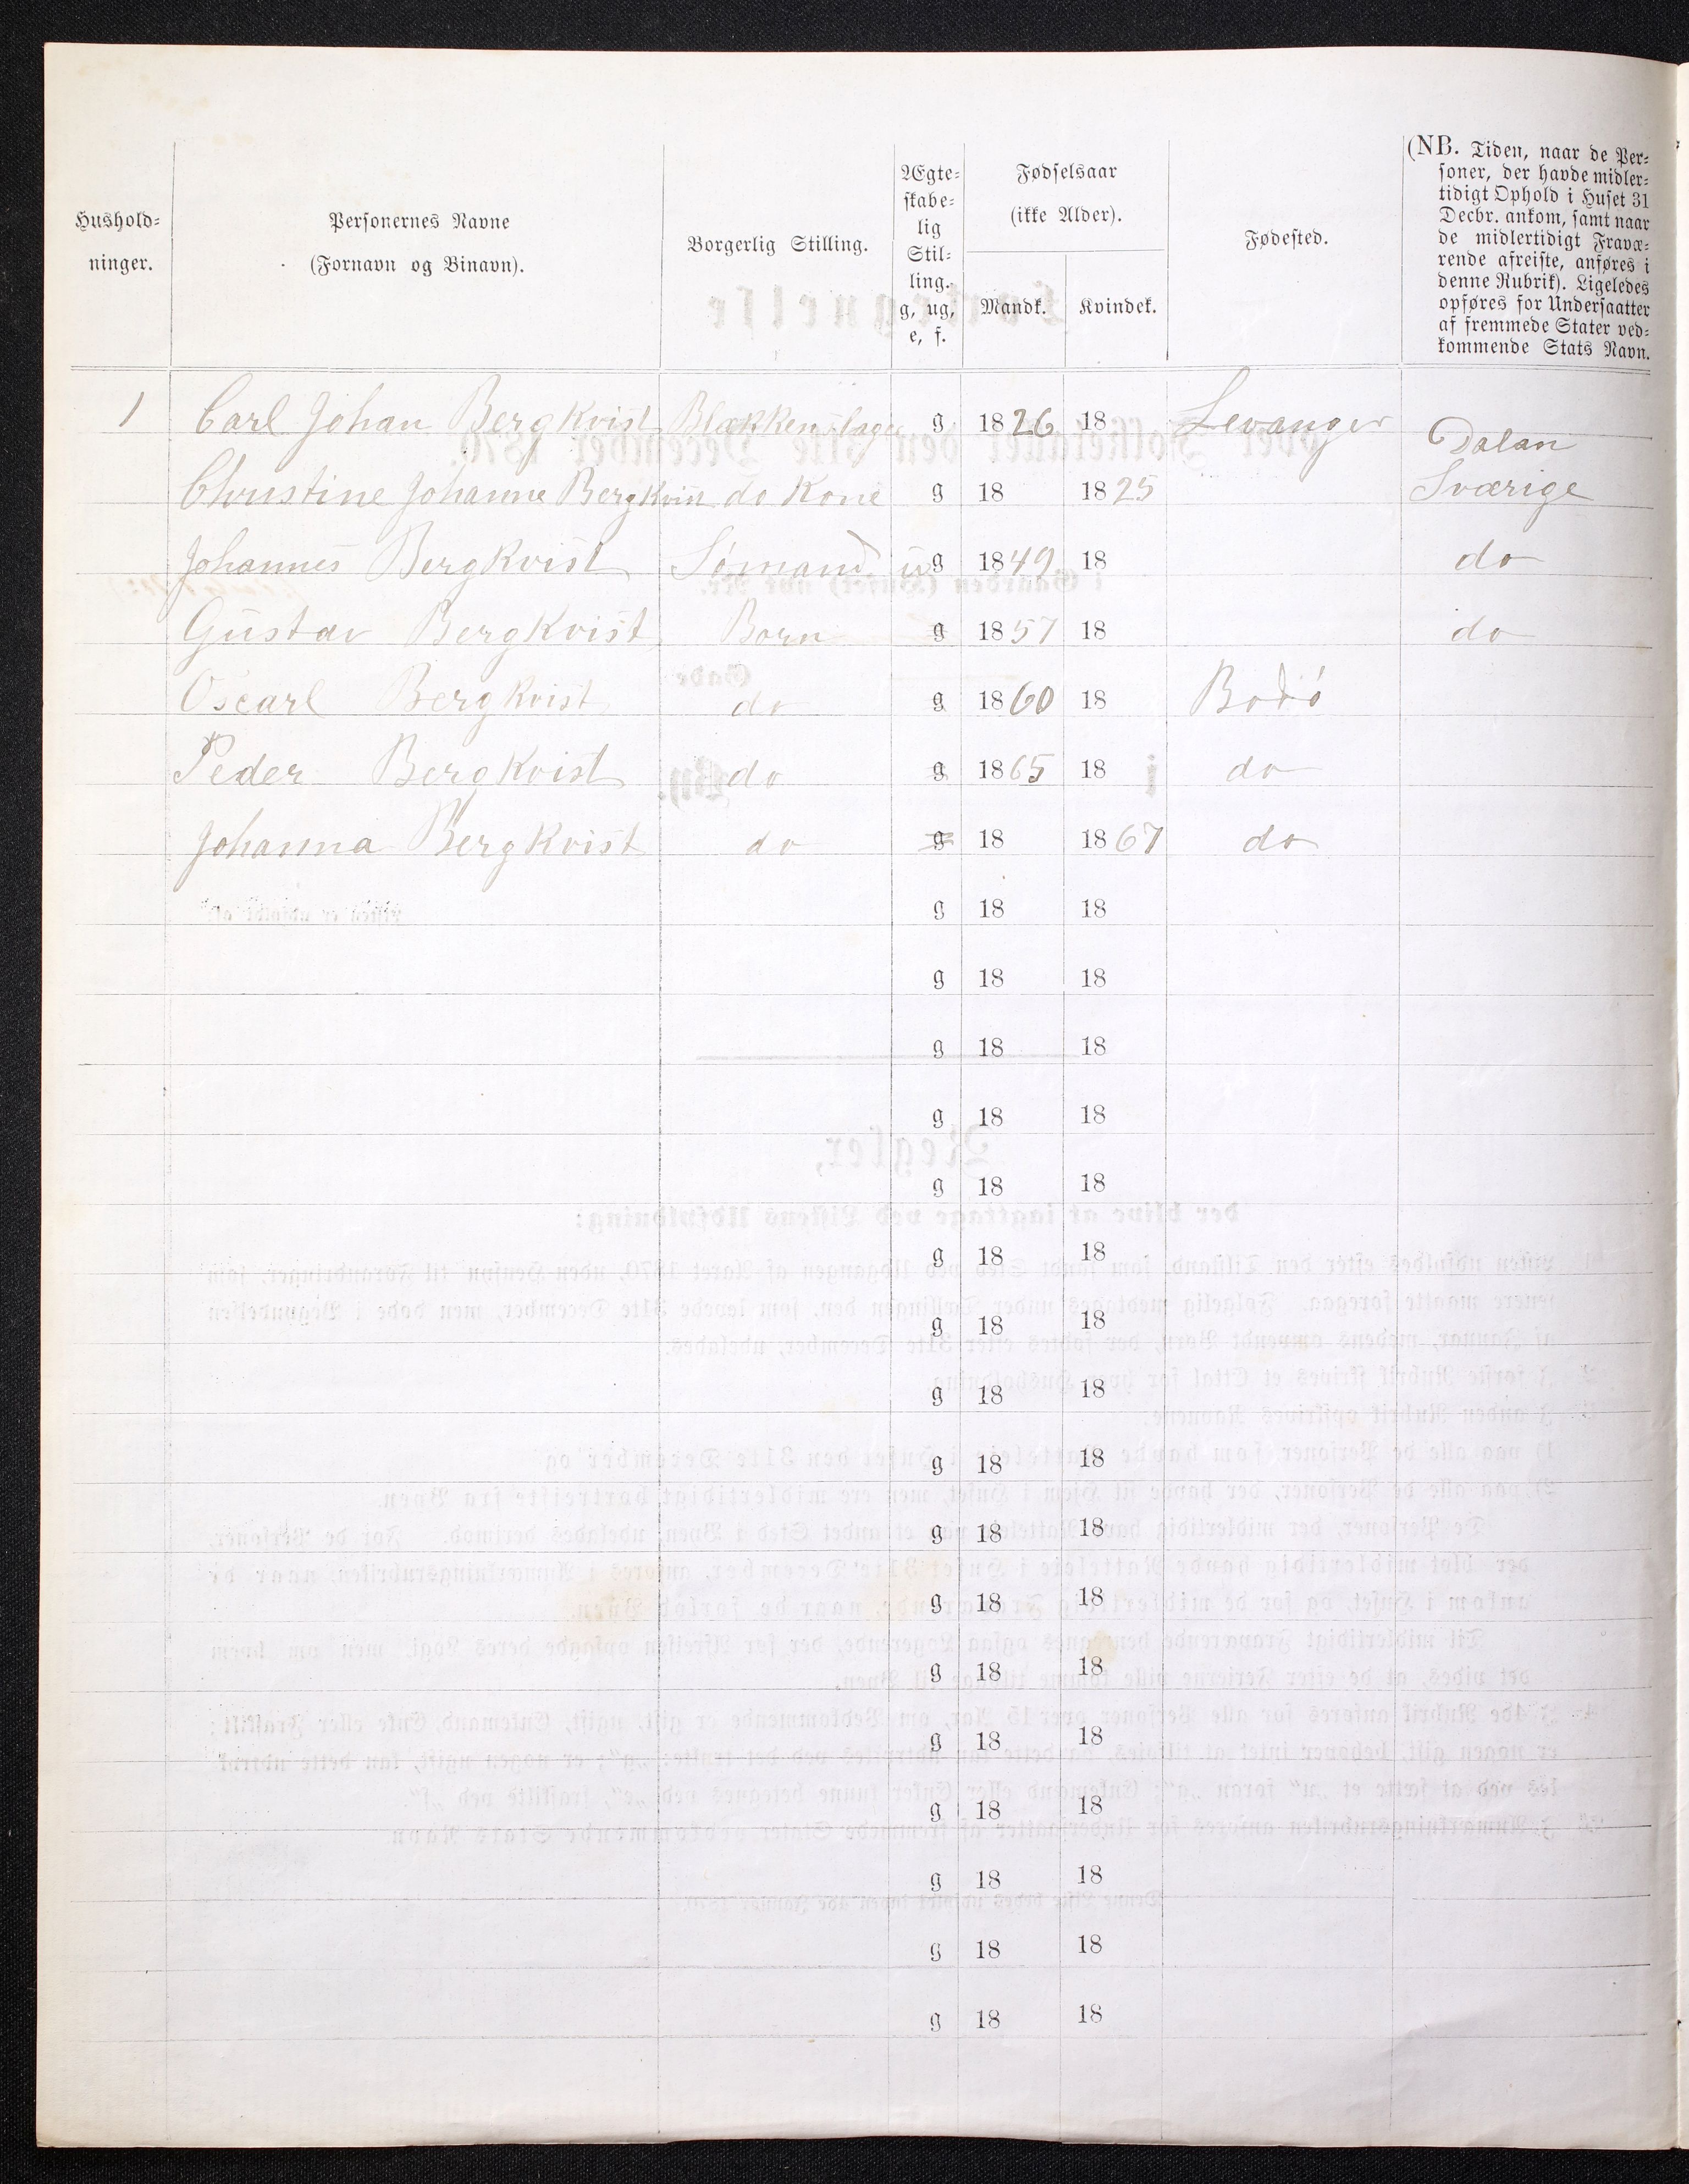 Hushold-
ninger.
Personernes Navne
(Fornavn og Binavn).
Borgerlig Stilling.
Ægte-
skabe-
lig
Stil-
ling.
g, ug,
e, f.
Fødselsaar
(ikke Alder).
Mandk.
Kvindek.
Fødested.
(NB. Tiden, naar de Per-
soner, der havde midler-
tidigt Ophold i Huset 31
Decbr. ankom, samt naar
de midlertidigt Fravæ-
rende afreiste, anføres i
denne Rubrik). Ligeledes
opføres for Undersaatter
af fremmede Stater ved-
kommende Stats Navn.
1 Carl Johan Bergkvist Blækkenslager g 1826 18 Levanger
Dalan
Christine Johanne Bergkvist do Kone g 18 1825 Sværige
Johannes Bergkvist Sømand ug 1849 18 do
Gustav Bergkvist Born g 1857 18 do
Oscarl Bergkvist do g 1860 18 Bodó
Peder Bergkvist do g 1865 18 do
Johanna Bergkvist do g 18 1867 do
g 18 18
g 18 18
g 18 18
g 18 18
g 18 18
g 18 18
g 18 18
g 18 18
g 18 18
g 18 18
g 18 18
g 18 18
g 18 18
g 18 18
g 18 18
g 18 18
g 18 18